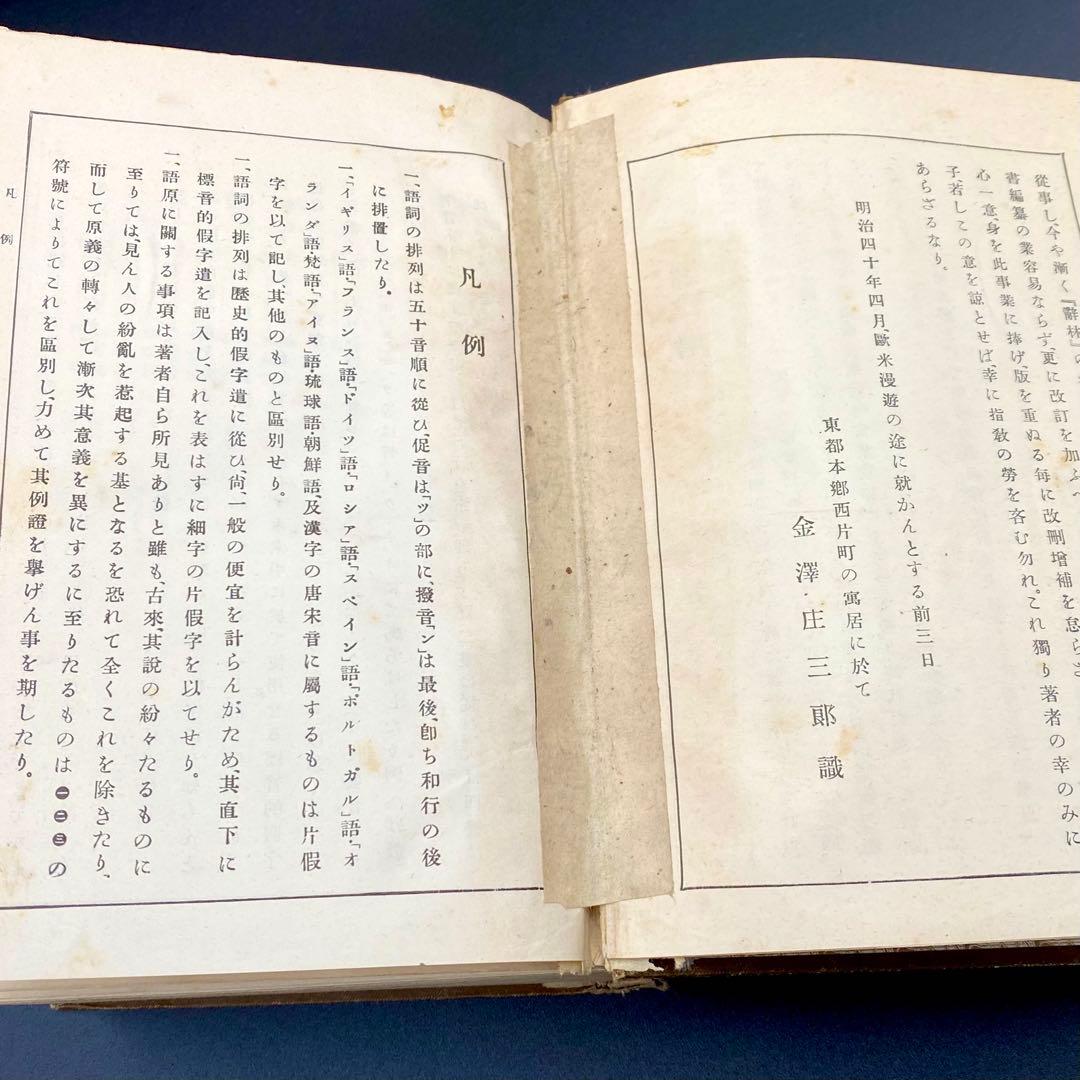 從事し今や漸く『辭林』の
書編纂の業容易ならず、更に改訂を加ふべ
心一意、身を此事業に捧げ、版を重ぬる每に改刪增補を怠らさ
子、若しこの意を諒とせば、幸に指敎の勞を吝む勿れ。これ獨り著者の幸のみに
あらざるなり。
明治四十年四月、歐米漫遊の途に就かんとする前三日
東都本鄕西片町の寓居に於て
金澤庄三郞識
凡例
一、語詞の排列は五十音順に從ひ、促音は「ッ」の部に、撥音「ン」は最後、卽ち和行の後
に排置したり。
一、「イギリス」語・「フランス」語・「ドイツ」語・「ロシア」語・「スペイン」語・「ポルトガル」語・「オ
ランダ」語・梵語・「アイヌ」語・琉球語・朝鮮語、及漢字の唐宋音に屬するものは片假
字を以て記し、其他のものと區別せり。
一、語詞の排列は歷史的假字遣に從ひ、尙、一般の便宜を計らんがため、其直下に
標音的假字遣を記入し、これを表はすに細字の片假字を以てせり。
一、語原に關する事項は著者自ら所見ありと雖も、古來、其說の紛々たるものに
至りては、見ん人の紛亂を惹起する基となるを恐れて全くこれを除きたり、
而して原義の轉々して漸次其意義を異にするに至りたるものは㊀㊁㊂の
符號によりてこれを區別し、力めて其例證を擧げん事を期したり。
凡例